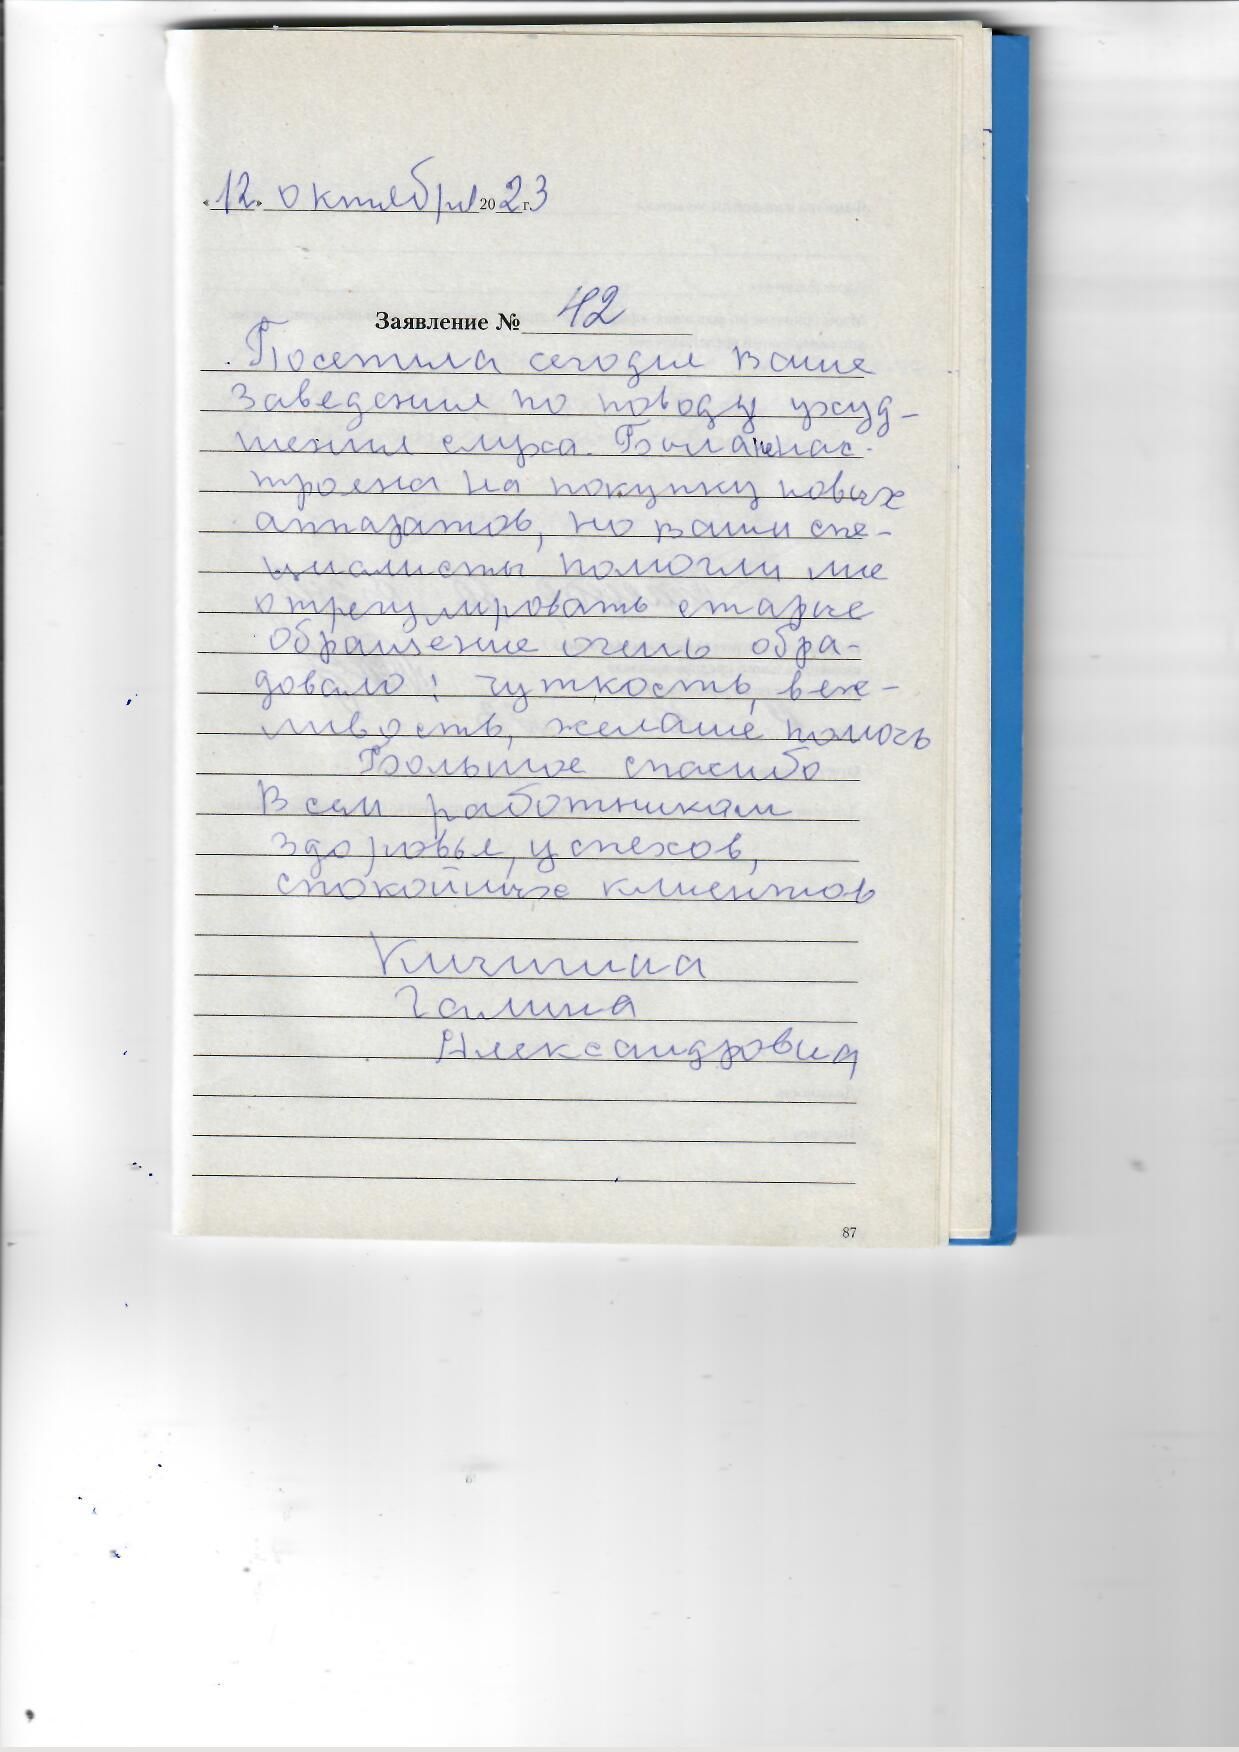 «12» октября 2023 г.
Заявление № 42
Посетила сегодня ваше
заведения по поводу ухуд-
шения слуха. Была нас-
троена на покупку новых
аппаратов, но ваши спе-
циалисты помогли мне
отрегулировать старые
обращение очень обра-
довало! чуткость, веж-
ливость, желание помочь
Большое спасибо
Всем работникам
здоровья, успехов,
спокойных клиентов
Галина
Александровна
87